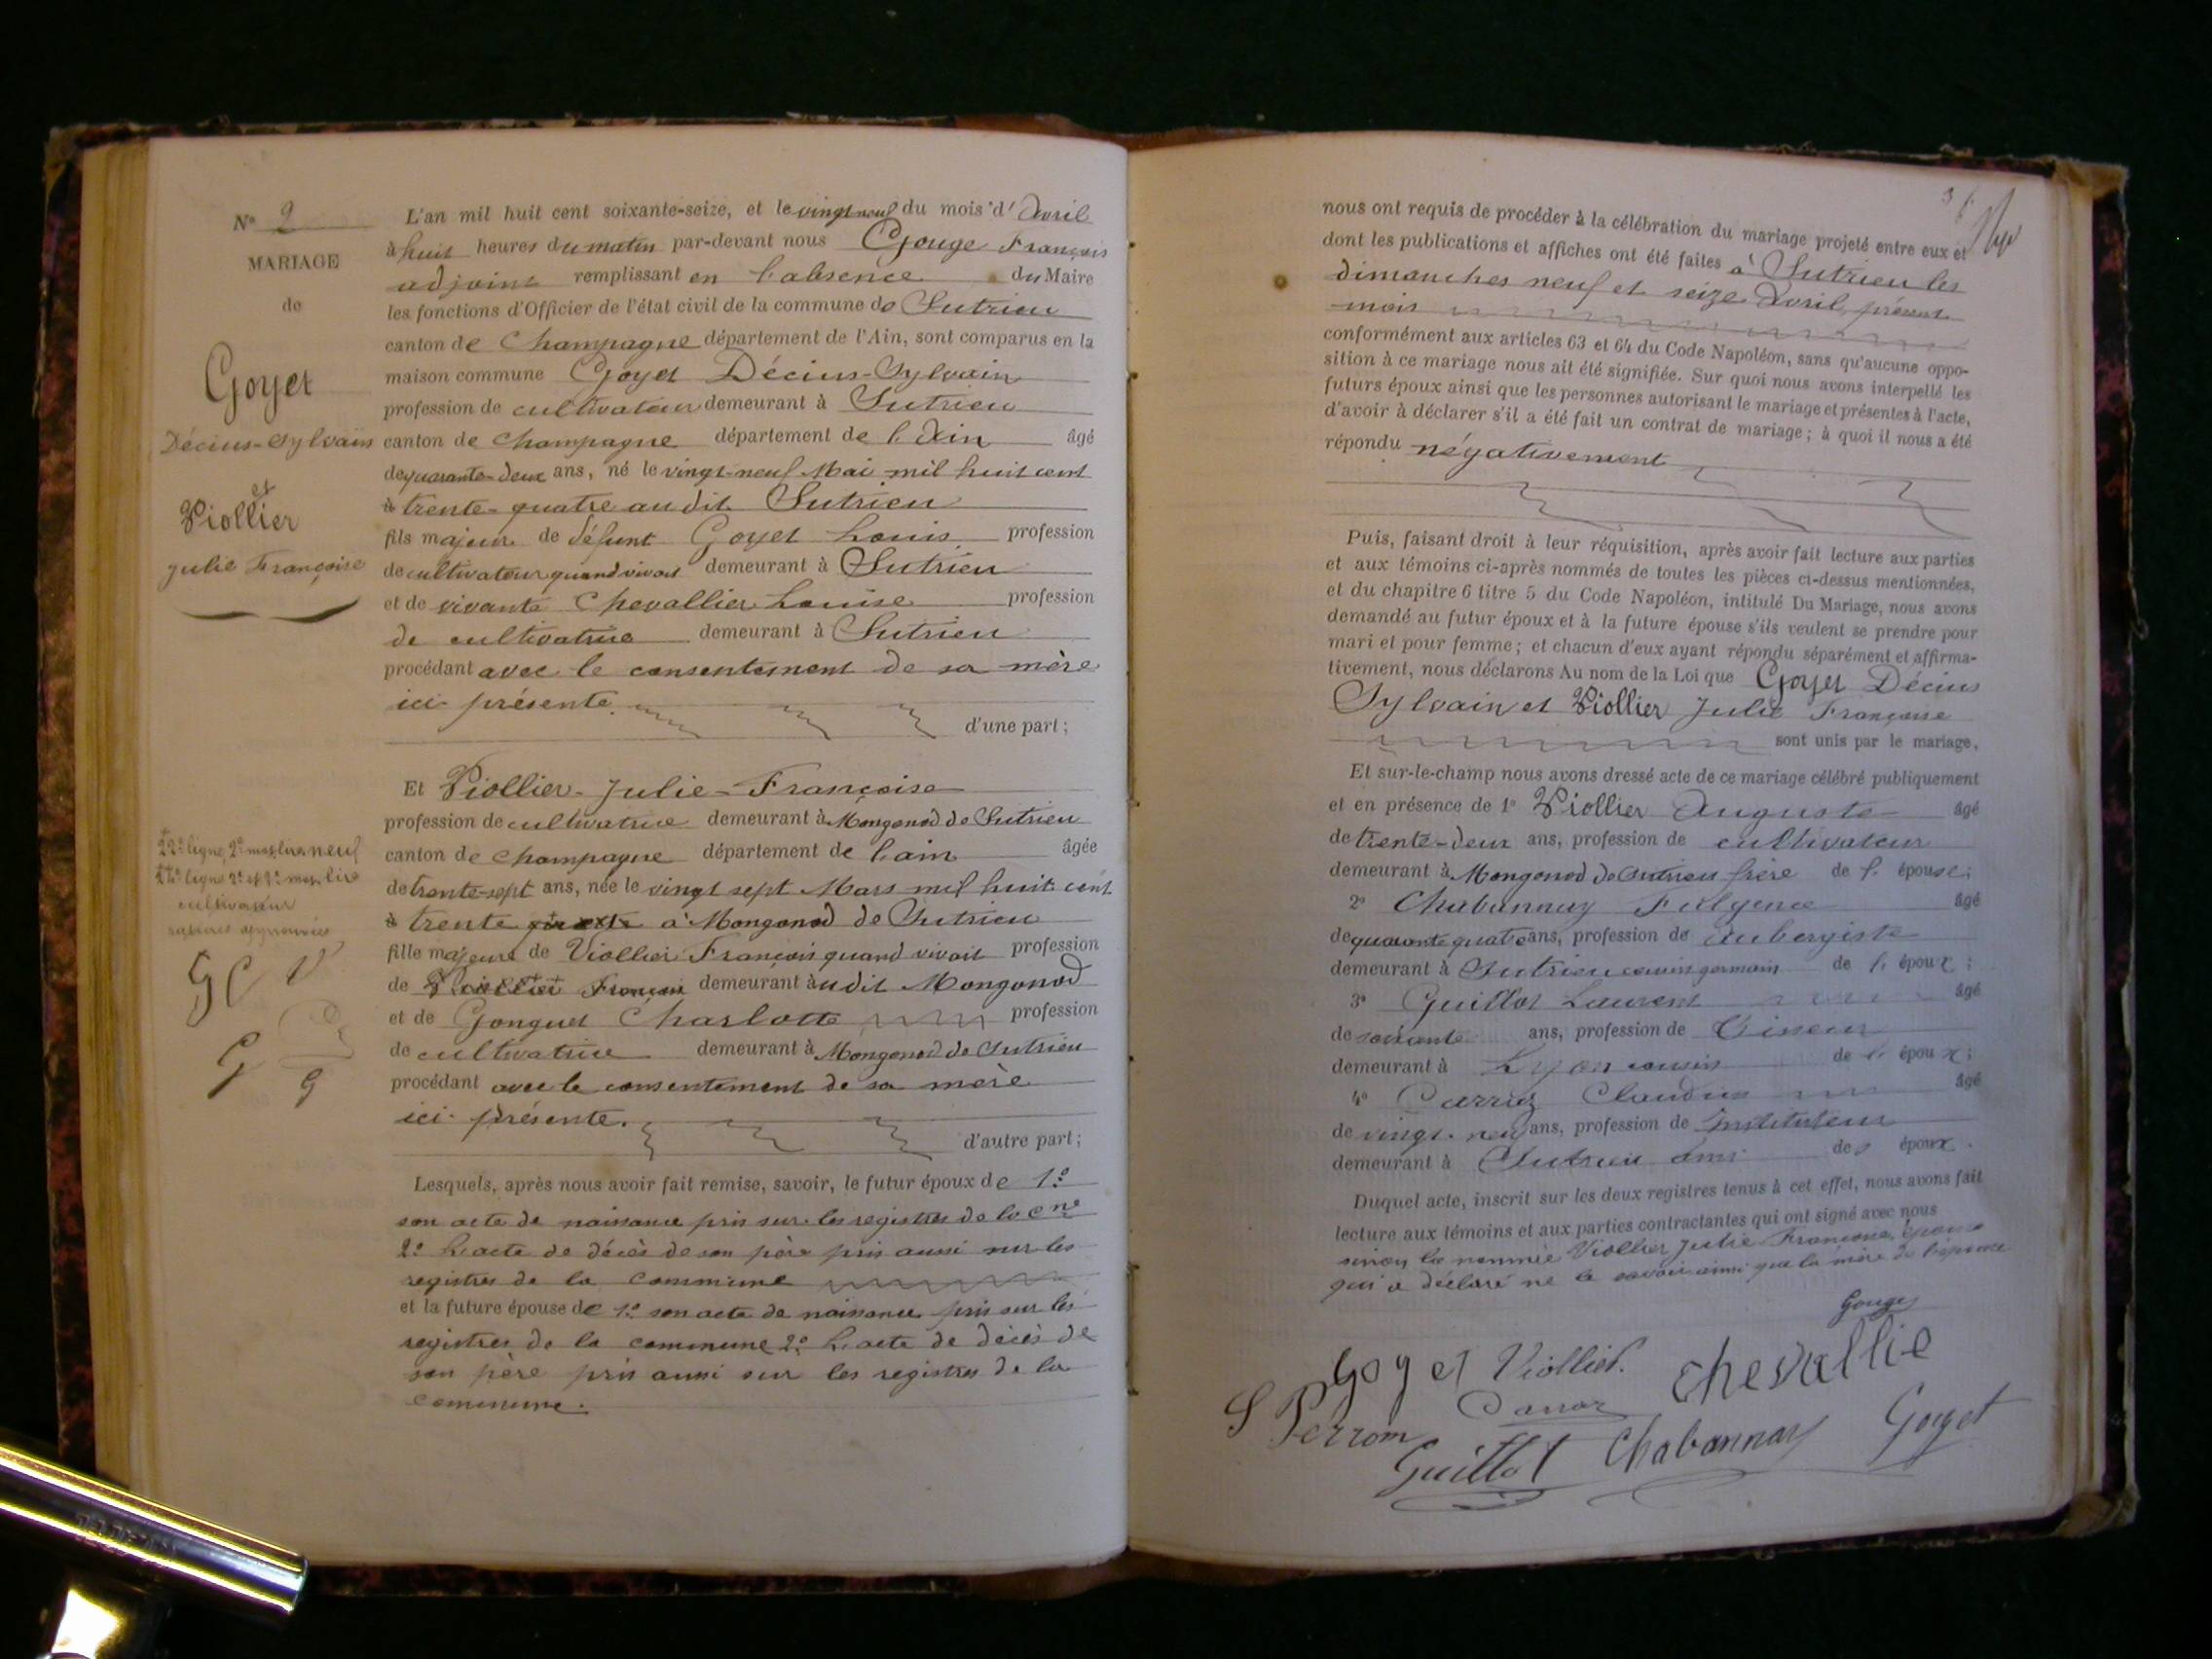 N° 2
MARIAGE
de
Goyet
Décius-Sylvain
et
Viollier
Julie Françoise
22e ligne 2e mot lire neuf
24e ligne 2e et 3e mot lire
cultivateur
ratures approuvées
GC V
G G
L'an mil huit cent soixante-seize, et le vingt neuf du mois d'Avril
à huit heures du matin par-devant nous Gouge François
adjoint remplissant en l'absence du Maire
les fonctions d'Officier de l'état civil de la commune de Sutrieu
canton de Champagne département de l'Ain, sont comparus en la
maison commune Goyet Décius-Sylvain
profession de cultivateur demeurant à Sutrieu
canton de Champagne département de l'Ain âgé
de quarante-deux ans, né le vingt-neuf Mai mil huit cent
à trente-quatre au dit Sutrieu
fils majeur de défunt Goyet Louis profession
de cultivateur quand vivait demeurant à Sutrieu
et de vivante Chevallier Louise profession
de cultivatrice demeurant à Sutrieu
procédant avec le consentement de sa mère
ici présente d'une part ;
Et Viollier-Julie-Françoise
profession de cultivatrice demeurant à Mongonod de Sutrieu
canton de Champagne département de l'ain âgée
de trente-sept ans, née le vingt sept Mars mil huit cent
à trente à Mongonod de Sutrieu
fille majeure de Viollier François quand vivait profession
de Viollier François demeurant audit Mongonod
et de Gonguet Charlotte profession
de cultivatrice demeurant à Mongonod de Sutrieu
procédant avec le consentement de sa mère
ici présente. d'autre part ;
Lesquels, après nous avoir fait remise, savoir, le futur époux de 1°
son acte de naissance pris sur les registres de la cne
2° L'acte de décès de son père pris aussi sur les
registres de la commune
et la future épouse de 1° son acte de naissance pris sur les
registres de la commune 2° L'acte de décès de
son père pris aussi sur les registres de la
commune.
nous ont requis de procéder à la célébration du mariage projeté entre eux et
dont les publications et affiches ont été faites à Sutrieu les
dimanches neuf et seize Avril, présent
mois
conformément aux articles 63 et 64 du Code Napoléon, sans qu'aucune oppo-
sition à ce mariage nous ait été signifiée. Sur quoi nous avons interpellé les
futurs époux ainsi que les personnes autorisant le mariage et présentes à l'acte,
d'avoir à déclarer s'il a été fait un contrat de mariage ; à quoi il nous a été
répondu négativement
Puis, faisant droit à leur réquisition, après avoir fait lecture aux parties
et aux témoins ci-après nommés de toutes les pièces ci-dessus mentionnées,
et du chapitre 6 titre 5 du Code Napoléon, intitulé Du Mariage, nous avons
demandé au futur époux et à la future épouse s'ils veulent se prendre pour
mari et pour femme ; et chacun d'eux ayant répondu séparément et affirma-
tivement, nous déclarons Au nom de la Loi que Goyet Décius
Sylvain et Viollier Julie Françoise
sont unis par le mariage,
Et sur-le-champ nous avons dressé acte de ce mariage célébré publiquement
et en présence de 1° Viollier Auguste âgé
de trente-deux ans, profession de cultivateur
demeurant à Mongonod de Sutrieu frère de l'épouse ;
2° Chabannay Fulgence âgé
de quarante quatre ans, profession de aubergiste
demeurant à Sutrieu cousin germain de l'époux ;
3° Guillot Laurent âgé
de soixante ans, profession de Tisseur
demeurant à Lyon cousin de l'époux ;
4° Carraz Claudius âgé
de vingt-neuf ans, profession de Instituteur
demeurant à Sutrieu ami des époux.
Duquel acte, inscrit sur les deux registres tenus à cet effet, nous avons fait
lecture aux témoins et aux parties contractantes qui ont signé avec nous
sinon la nommée Viollier Julie Françoise, épouse
qui a déclaré ne le savoir ainsi que la mère de l'épouse
Gouge
Goyet Viollier. Chevallie
S Perrom Carraz
Guillot Chabannay Goyet